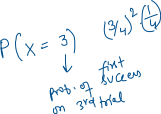 P(X = 3) (3/4)² (1/4)
↓
prob. of first success
on 3rd trial